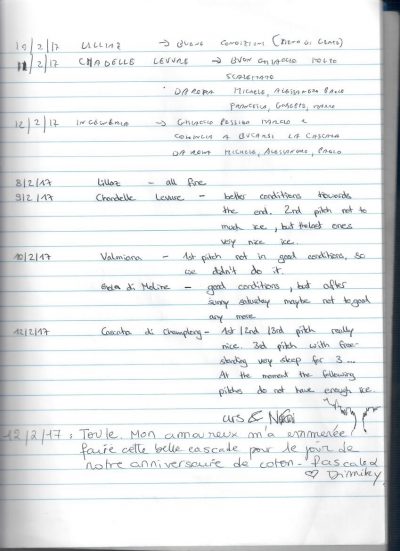 10/2/17 LILLAZ → BUONE CONDIZIONI
11/2/17 CHADELLE LEVURE → BUON GHIACCIO MOLTO
SCALETTATO
DA ROMA MICHELE, ALESSANDRA
FRANCESCA,
12/2/17 → GHIACCIO PESSIMO MARCIO E
COMINCIA A BUCARSI LA CASCATA
DA ROMA MICHELE, ALESSANDRA, PAOLO
8/2/17 Lillaz - all fine
9/2/17 Chandelle Levure - better conditions towards
the end. 2nd pitch not to
much ice, but the last ones
very nice ice.
10/2/17 Valmiana - 1st pitch not in good conditions, so
we didn't do it.
di Moline - good conditions, but after
sunny saturday maybe not to good
any more
12/2/17 Cascata di Champleng - 1st/2nd/3rd pitch really
nice. 3rd pitch with free-
standing very steep for 3 ...
At the moment the following
pitches do not have enough ice.
URS &
12/2/17 : Toule. Mon amoureux m'a emmenée
faire cette belle cascade pour le jour de
notre anniversaire de coton - Pascale